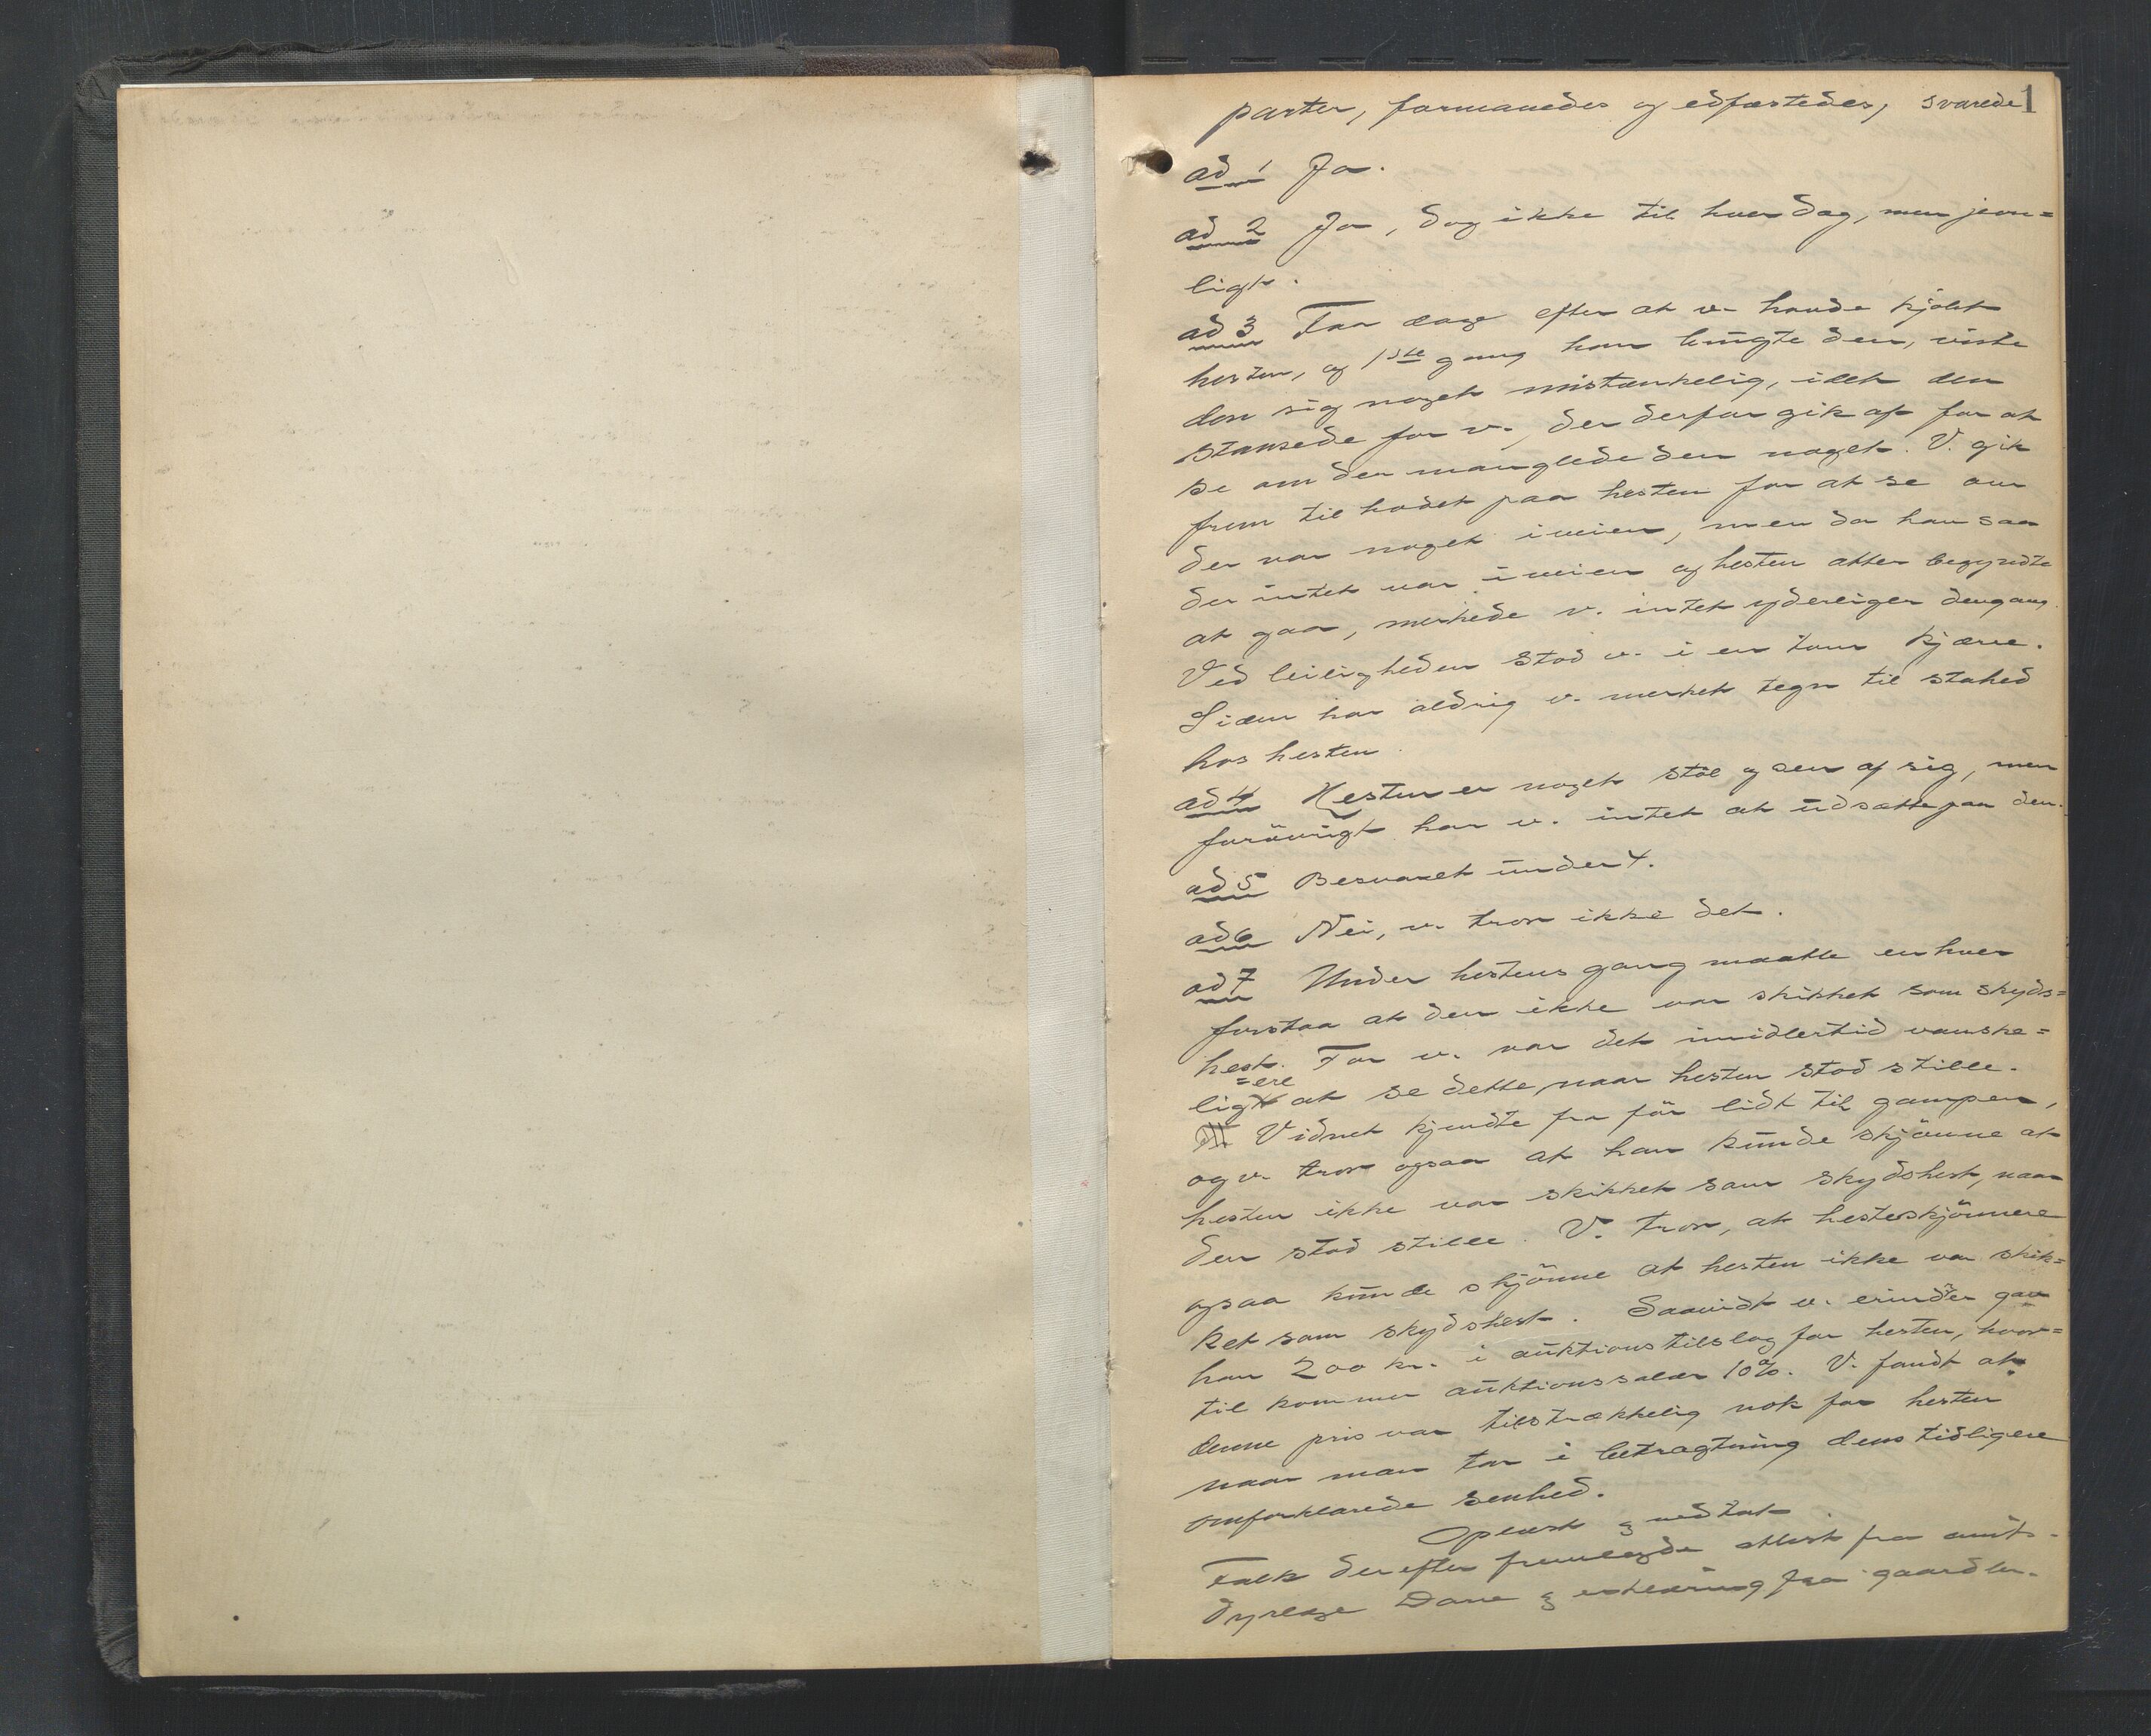 parter, formanedes og edfæstedes, svarede 1
ad 1 Ja.
ad 2 Ja, dog ikke til hver dag, men jevn=
ligt.
ad 3 Faa dage efter at v. havde kjøbt
hesten, og 1ste gang han brugte den, viste
den sig noget mistænkelig, idet den
stansede for v., der derfor gik af for at
se om der manglede den noget. V. gik
frem til hodet paa hesten for at se om
der var noget iveien, men da han saa
der intet var iveien og hesten atter begyndte
at gaa, merkede v. intet yderliger dengang.
Ved leiligheden stod v. i en tom kjærre.
Siden har aldrig v. merket tegn til stahed
hos hesten.
ad 4 Hesten er noget støl og sen af sig, men
forövrigt har v. intet at udsætte paa den.
ad 5 Besvaret under 4.
ad 6 Nei, v. tror ikke det.
ad 7 Under hestens gang maatte enhver
forstaa at den ikke var skikket som skyds=
hest. For v. var det imidlertid vanske=
=ere
ligt at se dette, naar hesten stod stille.
Vidnet kjendte fra før lidt til gampen,
og v. tror ogsaa at han kunde skjønne at
hesten ikke var skikket som skydshest, naar
den stod stille. V. tror, at hesteskjønnere
ogsaa kunde skjønne at hesten ikke var skik=
ket som skydshest. Saavidt v. erindrer gav
han 200 kr. i auktionstilslag for hesten, hvor=
til kommer auktionssalær 10%. V. fandt at
denne pris var tilstrækkelig nok for hesten
naar man tar i betragtning dens tidligere
omforklarede senhed.
Oplæst & vedtat
Falk derefter fremlagde attest fra amts-
dyrlæge Dane & erklæring fra gaardbr.